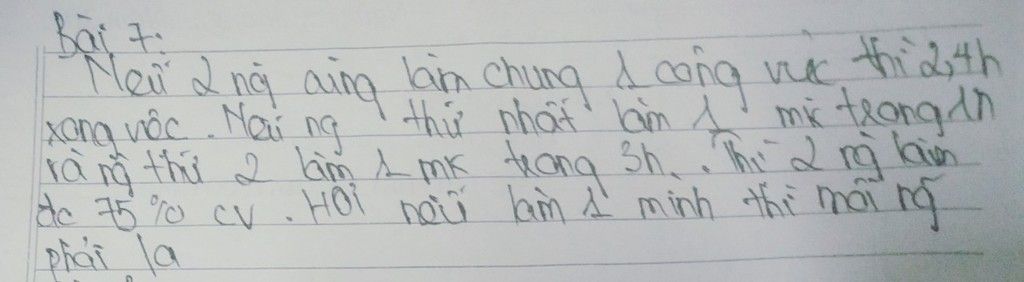 Bài 7:
Nếu 2 ng̀ cùng làm chung 1 công việc thì 2,4h
xong vôc. Nếu ng thứ nhất làm 1 mk trong 1h
và ng̃ thứ 2 làm 1 mk trong 3h. Thì 2 ng̀ làm
đc 75% cv. Hỏi nếu làm 1 mình thì mỗi ng̃
phải la